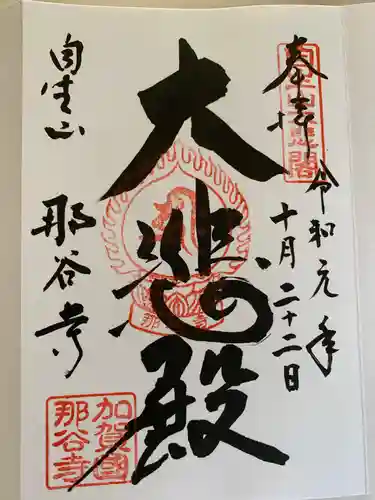 奉拝
令和元年
十月二十二日
大悲殿
自生山
那谷寺
那谷寺
加賀國
那谷寺